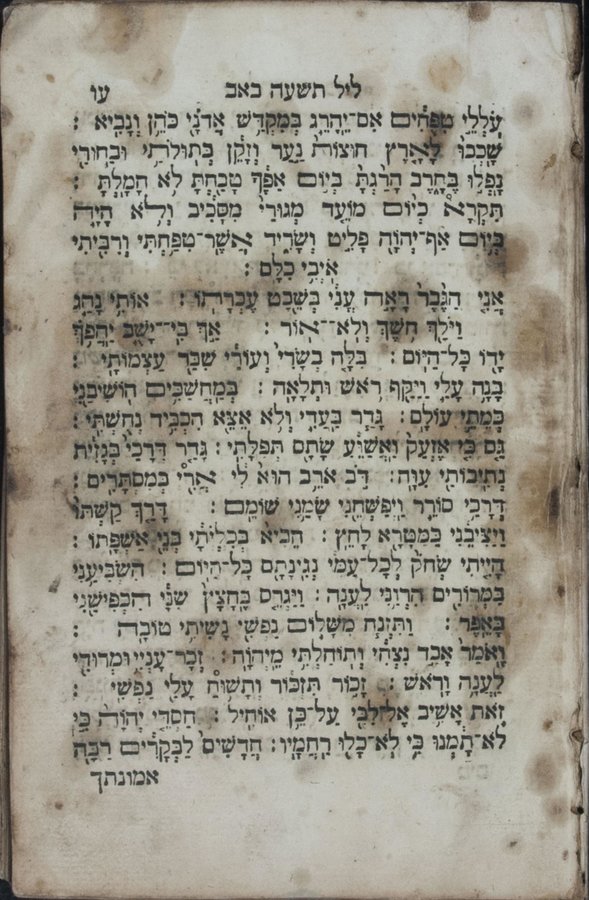 ליל תשעה באב עו
עֹלֲלֵי טִפֻּחִים אִם־יֵהָרֵג בְּמִקְדַּשׁ אֲדֹנָי כֹּהֵן וְנָבִיא :
שָׁכְבוּ לָאָרֶץ חוּצוֹת נַעַר וְזָקֵן בְּתוּלֹתַי וּבַחוּרַי
נָפְלוּ בֶחָרֶב הָרַגְתָּ בְּיוֹם אַפֶּךָ טָבַחְתָּ לֹא חָמָלְתָּ :
תִּקְרָא כְיוֹם מוֹעֵד מְגוּרַי מִסָּבִיב וְלֹא הָיָה
בְּיוֹם אַף־יְהוָה פָּלִיט וְשָׂרִיד אֲשֶׁר־טִפַּחְתִּי וְרִבִּיתִי
אֹיְבִי כִלָּם :
אֲנִי הַגֶּבֶר רָאָה עֳנִי בְּשֵׁבֶט עֶבְרָתוֹ : אוֹתִי נָהַג
וַיֹּלַךְ חֹשֶׁךְ וְלֹא־אוֹר : אַךְ בִּי־יָשֻׁב יַהֲפֹךְ
יָדוֹ כָּל־הַיּוֹם : בִּלָּה בְשָׂרִי וְעוֹרִי שִׁבַּר עַצְמוֹתָי :
בָּנָה עָלַי וַיַּקַּף רֹאשׁ וּתְלָאָה : בְּמַחֲשַׁכִּים הוֹשִׁיבַנִי
כְּמֵתֵי עוֹלָם : גָּדַר בַּעֲדִי וְלֹא אֵצֵא הִכְבִּיד נְחָשְׁתִּי :
גַּם כִּי אֶזְעַק וַאֲשַׁוֵּעַ שָׂתַם תְּפִלָּתִי : גָּדַר דְּרָכַי בְּגָזִית
נְתִיבוֹתַי עִוָּה : דֹּב אֹרֵב הוּא לִי אֲרִי בְּמִסְתָּרִים :
דְּרָכַי סוֹרֵר וַיְפַשְּׁחֵנִי שָׂמַנִי שׁוֹמֵם : דָּרַךְ קַשְׁתּוֹ
וַיַּצִּיבֵנִי כַּמַּטָּרָא לַחֵץ : הֵבִיא בְּכִלְיֹתָי בְּנֵי אַשְׁפָּתוֹ :
הָיִיתִי שְּׂחֹק לְכָל־עַמִּי נְגִינָתָם כָּל־הַיּוֹם : הִשְׂבִּיעַנִי
בַמְּרוֹרִים הִרְוַנִי לַעֲנָה : וַיַּגְרֵס בֶּחָצָץ שִׁנָּי הִכְפִּישַׁנִי
בָּאֵפֶר : וַתִּזְנַח מִשָּׁלוֹם נַפְשִׁי נָשִׁיתִי טוֹבָה :
וָאֹמַר אָבַד נִצְחִי וְתוֹחַלְתִּי מֵיְהוָה : זְכָר־עָנְיִי וּמְרוּדִי
לַעֲנָה וָרֹאשׁ : זָכוֹר תִּזְכּוֹר וְתָשׁוּחַ עָלַי נַפְשִׁי :
זֹאת אָשִׁיב אֶל־לִבִּי עַל־כֵּן אוֹחִיל : חַסְדֵי יְהוָה כִּי
לֹא־תָמְנוּ כִּי לֹא־כָלוּ רַחֲמָיו : חֲדָשִׁים לַבְּקָרִים רַבָּה
אמונתך